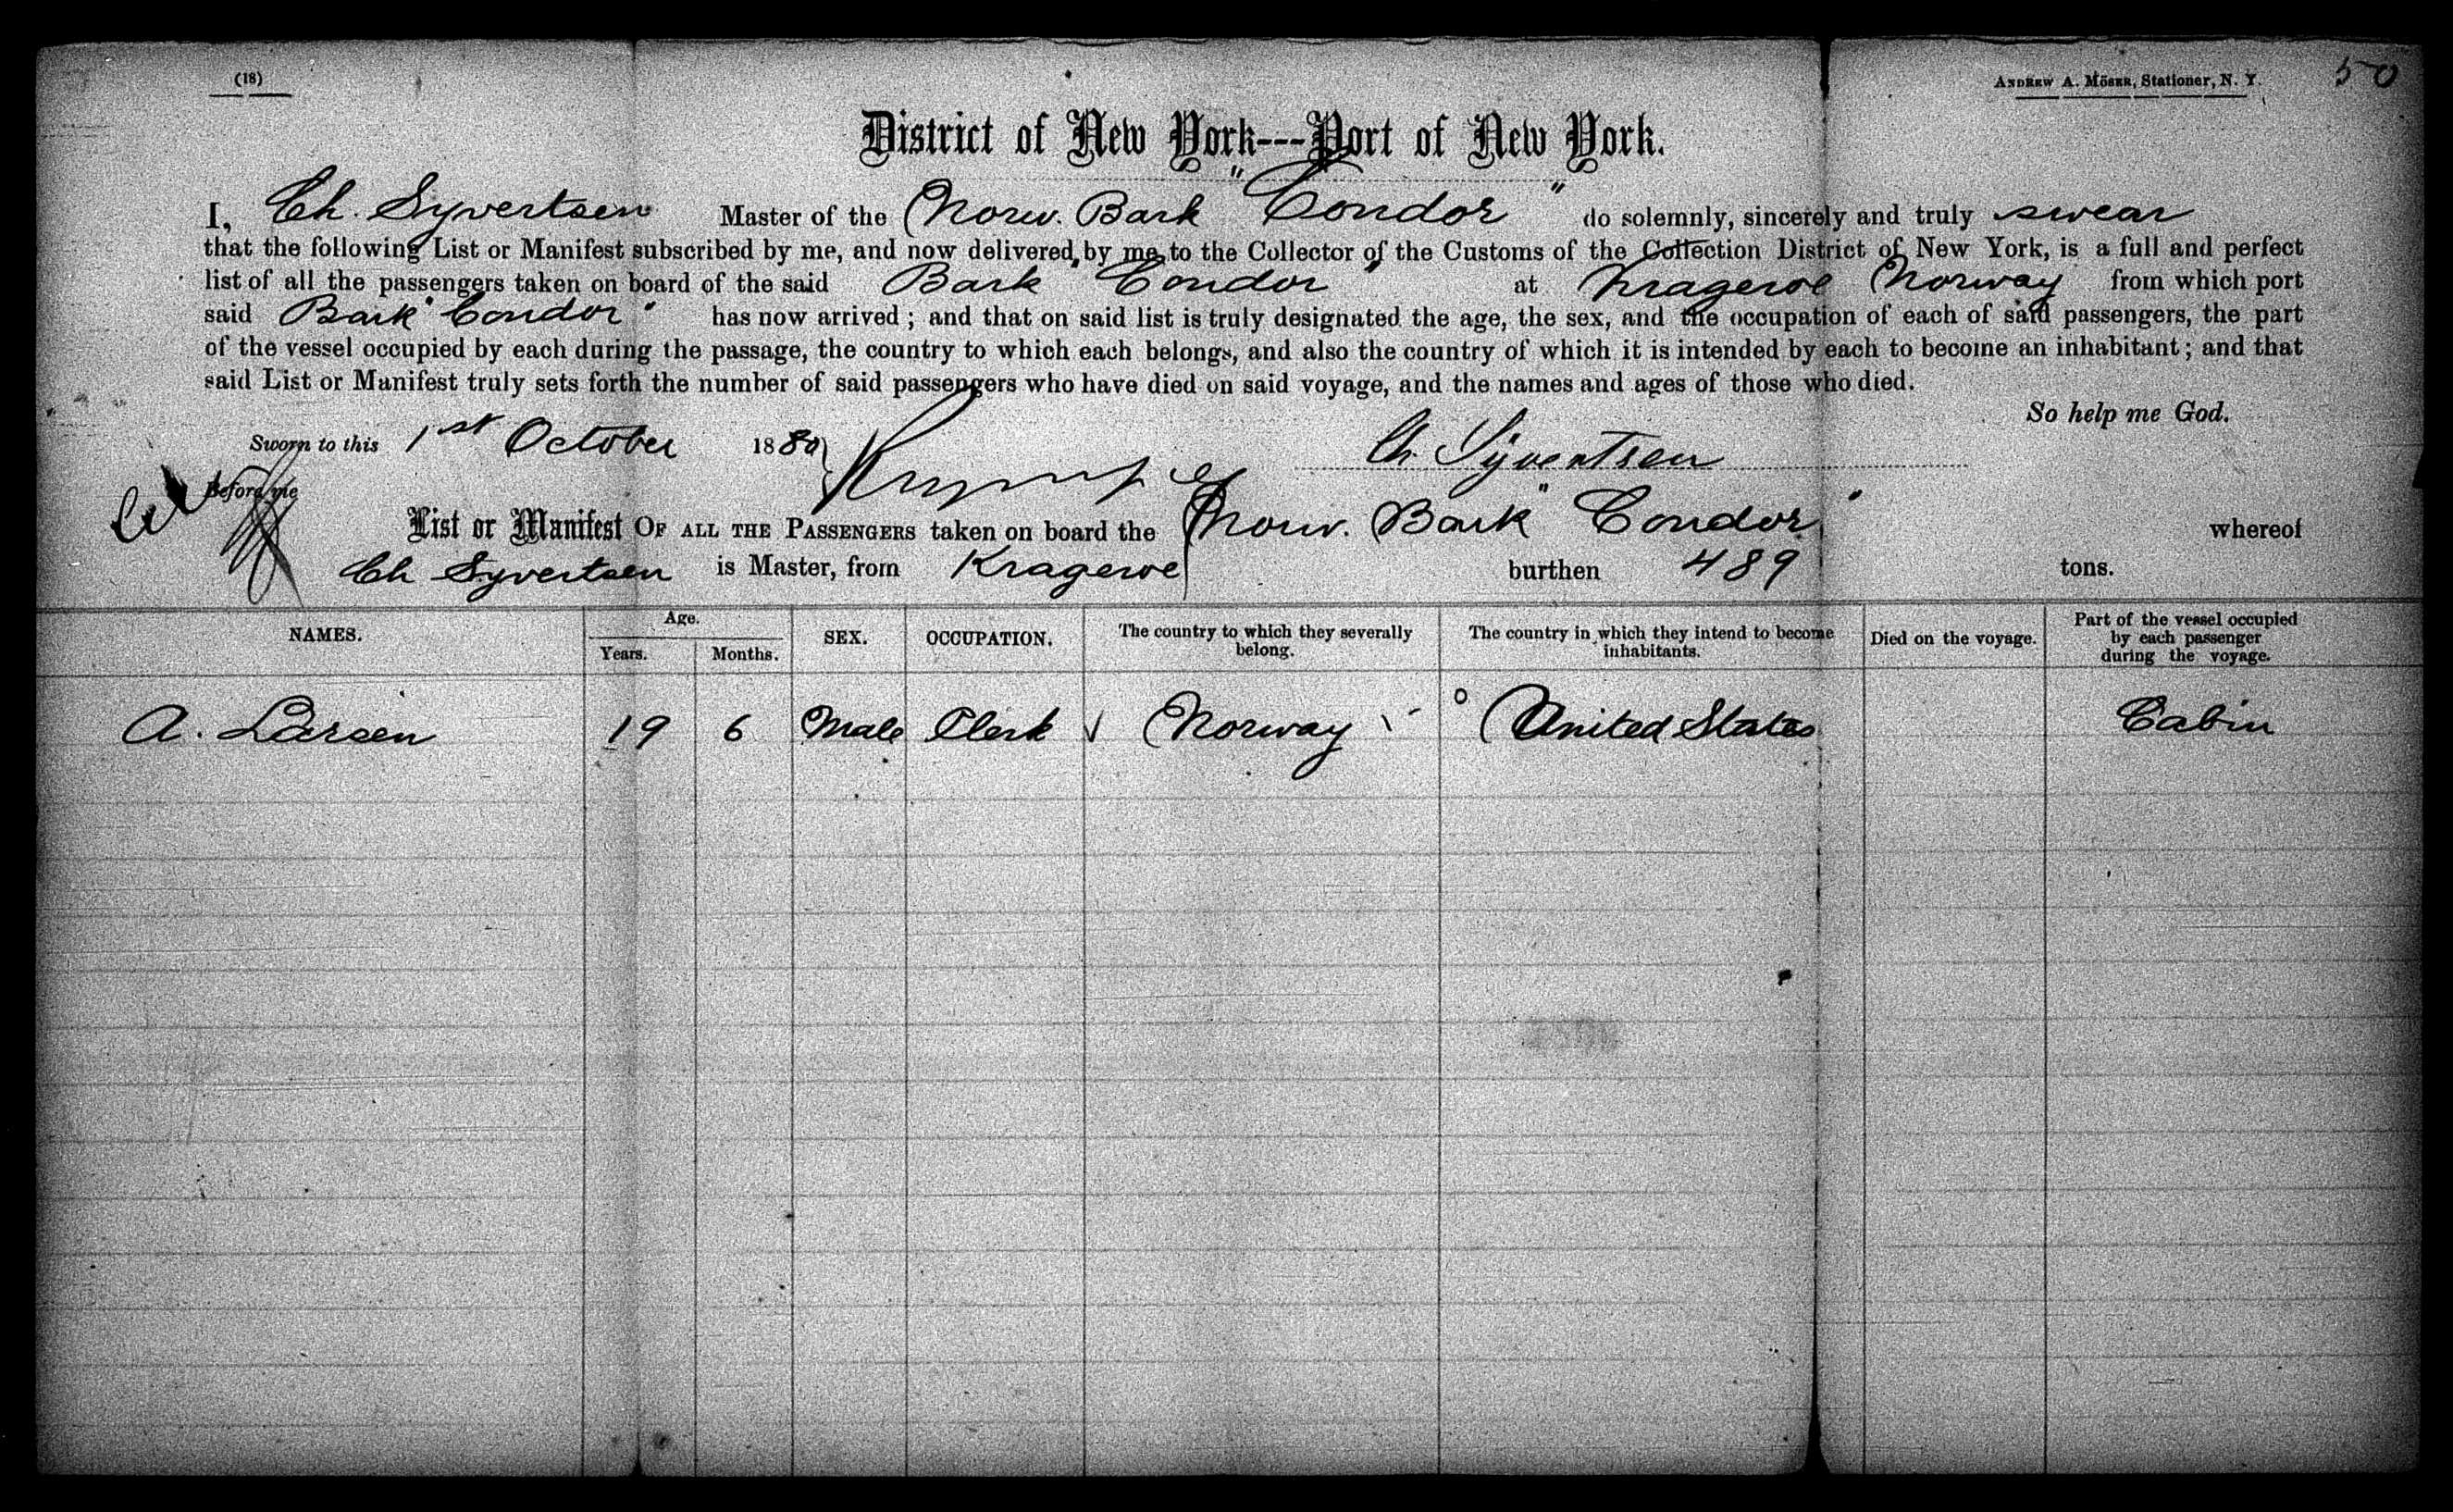 (18)
ANDREW A. MÖSER, Stationer, N. Y.
50
District of New York---Port of New York.
I, Ch. Syvertsen Master of the Norw. Bark "Condor" do solemnly, sincerely and truly swear
that the following List or Manifest subscribed by me, and now delivered by me to the Collector of the Customs of the Collection District of New York, is a full and perfect
list of all the passengers taken on board of the said Bark "Condor" at Krageroe Norway from which port
said Bark "Condor" has now arrived; and that on said list is truly designated the age, the sex, and the occupation of each of said passengers, the part
of the vessel occupied by each during the passage, the country to which each belongs, and also the country of which it is intended by each to become an inhabitant; and that
said List or Manifest truly sets forth the number of said passengers who have died on said voyage, and the names and ages of those who died.
So help me God.
Sworn to this 1st October 1880 Ch. Syvertsen
Before me
List or Manifest OF ALL THE PASSENGERS taken on board the Norw. Bark "Condor" whereof
Ch Syvertsen is Master, from Krageroe burthen 489 tons.
NAMES. Age. Years. Months. SEX. OCCUPATION. The country to which they severally belong. The country in which they intend to become inhabitants. Died on the voyage. Part of the vessel occupied by each passenger during the voyage.
A. Larsen 19 6 Male Clerk Norway United States Cabin